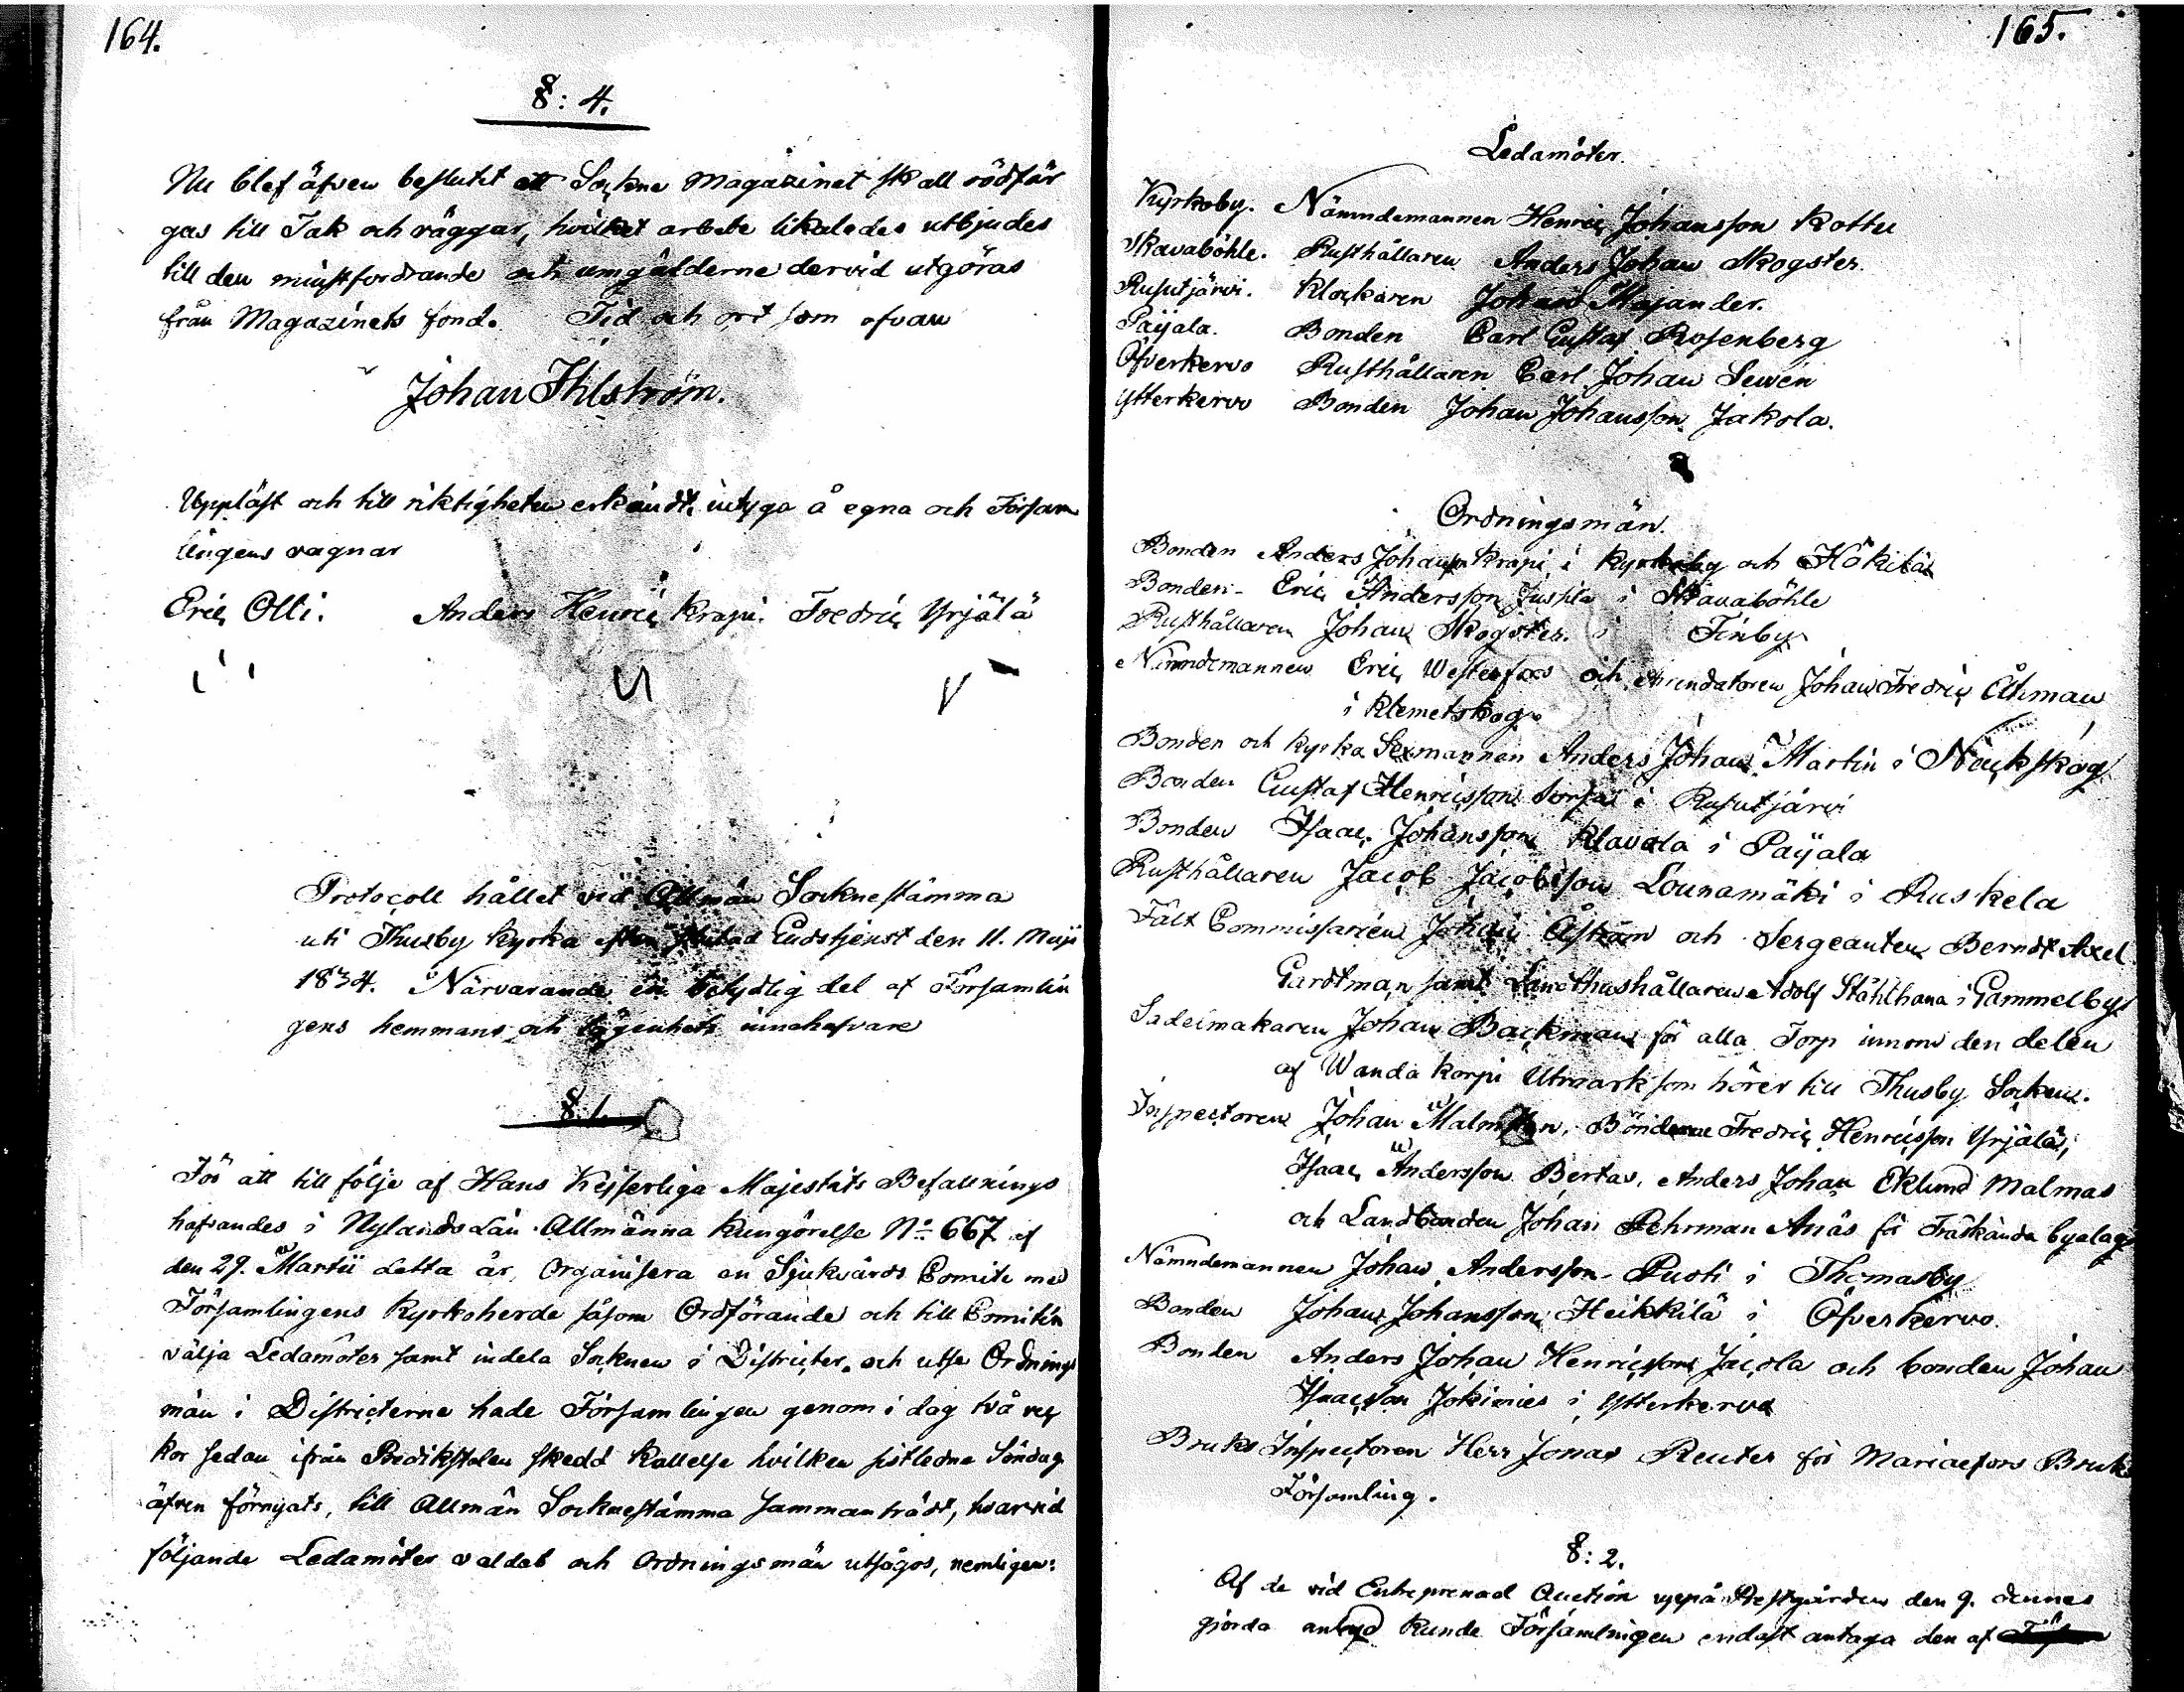 164.
§: 4.
Nu blef äfven beslutit att Sockne Magazinet skall rödfär
gas till Tak och väggar, hvilket arbete likaledes utbjudes
till den minstfordrande och umgälderne dervid utgöras
från Magazinets fond. Tid och ort som ofvan
Johan Ihlström.
Uppläst och till riktigheten erkändt, intyga å egna och Försam
lingens vagnar
Eric Olli. Anders Henric Krapi. Fredric Yrjälä
Protocoll hållet vid Allmän Socknestämma
uti Thusby Kyrka efter slutad Gudstjenst den 11. Maji
1834. Närvarande en betydlig del af Församlin
gens hemmans och lägenhets innehafvare
§. 1.
För att till följe af Hans Kejserliga Majestäts Befallnings
hafvandes i Nylands Län Allmänna Kungörelse No 667 af
den 29. Martii detta år, Organisera en Sjukvårds Comite med
Församlingens Kyrkoherde såsom Ordförande och till Comitén
välja Ledamöter samt indela Socknen i Districter, och utse Ordnings
män i Districterne hade Församlingen genom i dag två vec
kor sedan ifrån Predikstolen skedd Kallelse hvilken sistledne Söndag
äfven förnyats, till Allmän Socknestämma sammanträdt, hvarvid
följande Ledamöter valdes och Ordningsmän utsågos, nemligen:
165.
Ledamöter.
Kyrkoby. Nämndemannen Henric Johansson Kottu
Skavaböhle. Rusthållaren Anders Johan Skogster.
Rusutjärvi. Klockaren Johan Majander.
Paijala. Bonden Carl Gustaf Rosenberg
Öfverkervo Rusthållaren Carl Johan Sewén
Ytterkervo Bonden Johan Johansson Jakola.
Ordningsmän.
Bonden Anders Johansson Krapi i Kyrkoby och Hökilä
Bonden Eric Andersson Jussila i Skavaböhle
Rusthållaren Johan Skogster. i Finby
Nämndemannen Eric Westerfors och Arendatoren Johan Fredric Öhman
i Klemetskog.
Bonden och Kyrko Sexmannen Anders Johan Martin i Nackskog
Bonden Gustaf Henricsson Sorsa i Rusutjärvi
Bonden Isaac Johansson Klavola i Paijala
Rusthållaren Jacob Jacobsson Lounamäki i Ruskela
Fält Commissarien Johan Åström och Sergeanten Berndt Axel
Gardtman samt Lanethushållaren Adolf Ståhlhana i Gammelby
Sadelmakaren Johan Backman för alla Torp innom den delen
af Wanda Korpi Utmark som hörer till Thusby Socken.
Inspectoren Johan Malmsten, Bönderne Fredric Henricsson Yrjälä,
Isaac Andersson Bertas, Anders Johan Eklund Malmas
och Landbonden Johan Pehrman Anäs för Träskända byalag
Nämndemannen Johan Andersson Pusti i Thomasby
Bonden Johan Johansson Heikkilä i Öfverkervo.
Bonden Anders Johan Henricsson Jacola och bonden Johan
Isaacson Jokimies i Ytterkervo
Bruks Inspectoren Herr Jonas Reuter för Mariaefors Bruks
Församling.
§: 2.
Af de vid Entreprenad Auction uppå Prestgården den 9. dennes
gjorda anbud kunde Församlingen endast antaga den af